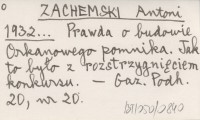 ZACHEMSKI Antoni
1932... Prawda o budowie
Orkanowego pomnika. Jak
to było z rozstrzygnięciem
konkursu. — Gaz. Podh.
20, nr 20.